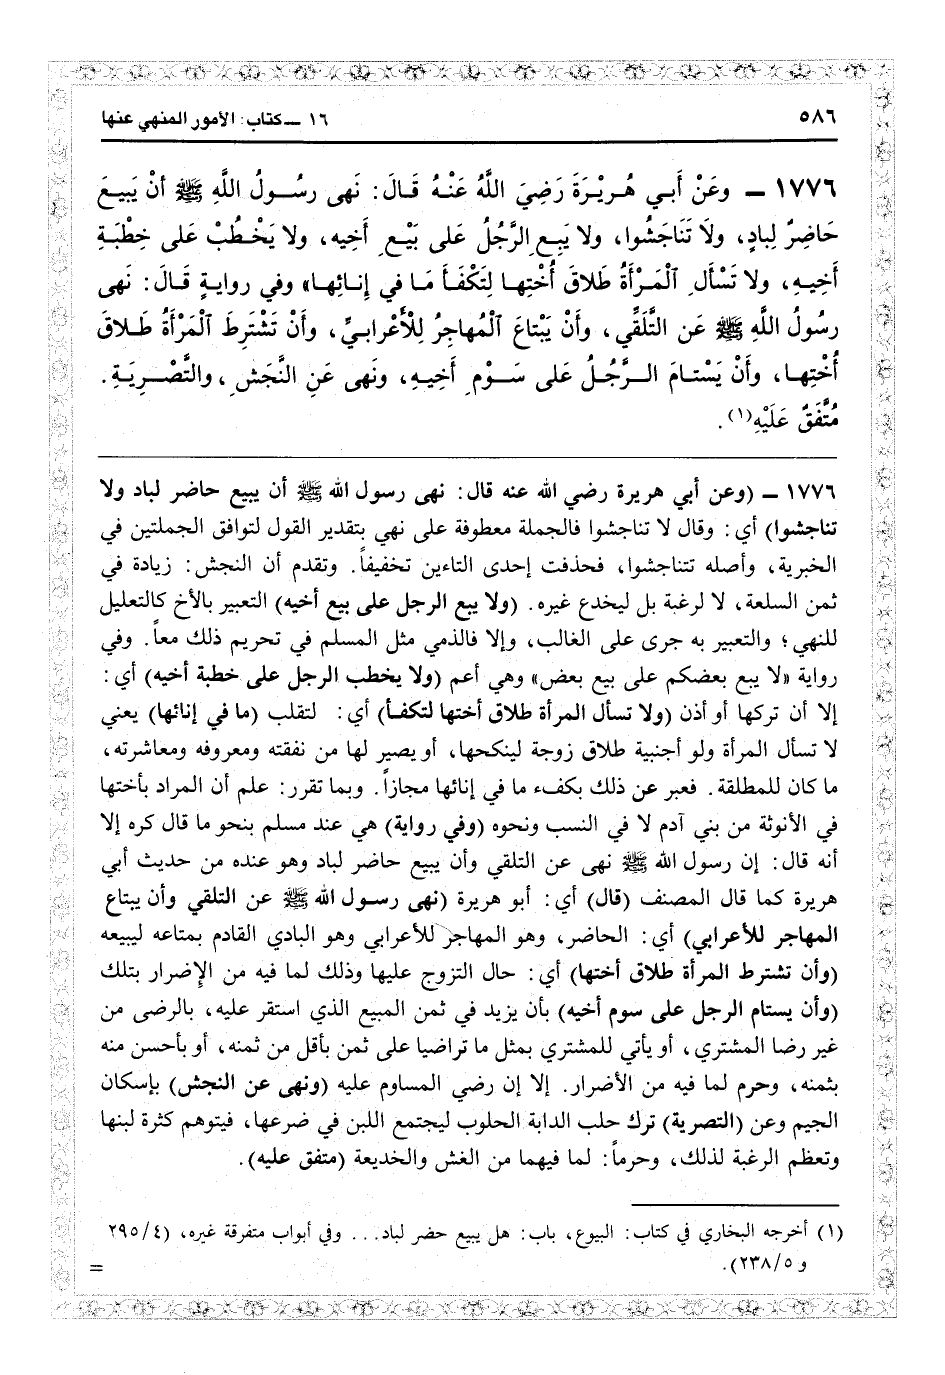 ٥٨٦ ١٦ ــ كتاب: الأمور المنهي عنها
١٧٧٦ ــ وعَنْ أَبي هُريْرَةَ رَضِيَ اللَّهُ عَنْهُ قَالَ: نَهى رسُولُ اللَّهِ ﷺ أنْ يَبيعَ
حَاضِرٌ لِبادٍ، ولَا تَنَاجَشُوا، ولا يَبِعِ الرَّجُلُ عَلى بَيْعِ أَخِيه، ولا يَخْطُبْ عَلى خِطْبَةِ
أَخِيهِ، ولا تَسْأَلِ ٱلْمَرْأَةُ طَلاقَ أُخْتِها لِتَكْفَأَ مَا في إِنائِها» وفي روايةٍ قَالَ: نَهى
رسُولُ اللَّهِ ﷺ عَنِ التَّلَقِّي، وأَنْ يَبْتاعَ ٱلْمُهاجِرُ لِلْأَعْرابيِّ، وأَنْ تَشْتَرِطَ ٱلْمَرْأَةُ طَلاقَ
أُخْتِها، وأَنْ يَسْتامَ الرَّجُلُ عَلى سَوْمِ أَخِيهِ، ونَهى عَنِ النَّجَشِ، والتَّصْرِيَةِ.
مُتَّفَقٌ عَلَيْهِ(١).
١٧٧٦ ــ (وعن أبي هريرة رضي الله عنه قال: نهى رسول الله ﷺ أن يبيع حاضر لباد ولا
تناجشوا) أي: وقال لا تناجشوا فالجملة معطوفة على نهي بتقدير القول لتوافق الجملتين في
الخبرية، وأصله تتناجشوا، فحذفت إحدى التاءين تخفيفاً. وتقدم أن النجش: زيادة في
ثمن السلعة، لا لرغبة بل ليخدع غيره. (ولا يبع الرجل على بيع أخيه) التعبير بالأخ كالتعليل
للنهي؛ والتعبير به جرى على الغالب، وإلا فالذمي مثل المسلم في تحريم ذلك معاً. وفي
رواية «لا يبع بعضكم على بيع بعض» وهي أعم (ولا يخطب الرجل على خطبة أخيه) أي:
إلا أن تركها أو أذن (ولا تسأل المرأة طلاق أختها لتكفأ) أي: لتقلب (ما في إنائها) يعني
لا تسأل المرأة ولو أجنبية طلاق زوجة لينكحها، أو يصير لها من نفقته ومعروفه ومعاشرته،
ما كان للمطلقة. فعبر عن ذلك بكفء ما في إنائها مجازاً. وبما تقرر: علم أن المراد بأختها
في الأنوثة من بني آدم لا في النسب ونحوه (وفي رواية) هي عند مسلم بنحو ما قال كره إلا
أنه قال: إن رسول الله ﷺ نهى عن التلقي وأن يبيع حاضر لباد وهو عنده من حديث أبي
هريرة كما قال المصنف (قال) أي: أبو هريرة (نهى رسول الله ﷺ عن التلقي وأن يبتاع
المهاجر للأعرابي) أي: الحاضر، وهو المهاجر للأعرابي وهو البادي القادم بمتاعه ليبيعه
(وأن تشترط المرأة طلاق أختها) أي: حال التزوج عليها وذلك لما فيه من الإضرار بتلك
(وأن يستام الرجل على سوم أخيه) بأن يزيد في ثمن المبيع الذي استقر عليه، بالرضى من
غير رضا المشتري، أو يأتي للمشتري بمثل ما تراضيا على ثمن بأقل من ثمنه، أو بأحسن منه
بثمنه، وحرم لما فيه من الأضرار. إلا إن رضي المساوم عليه (ونهى عن النجش) بإسكان
الجيم وعن (التصرية) ترك حلب الدابة الحلوب ليجتمع اللبن في ضرعها، فيتوهم كثرة لبنها
وتعظم الرغبة لذلك، وحرماً: لما فيهما من الغش والخديعة (متفق عليه).
(١) أخرجه البخاري في كتاب: البيوع، باب: هل يبيع حضر لباد... وفي أبواب متفرقة غيره، (٢٩٥/٤
و ٢٣٨/٥). =